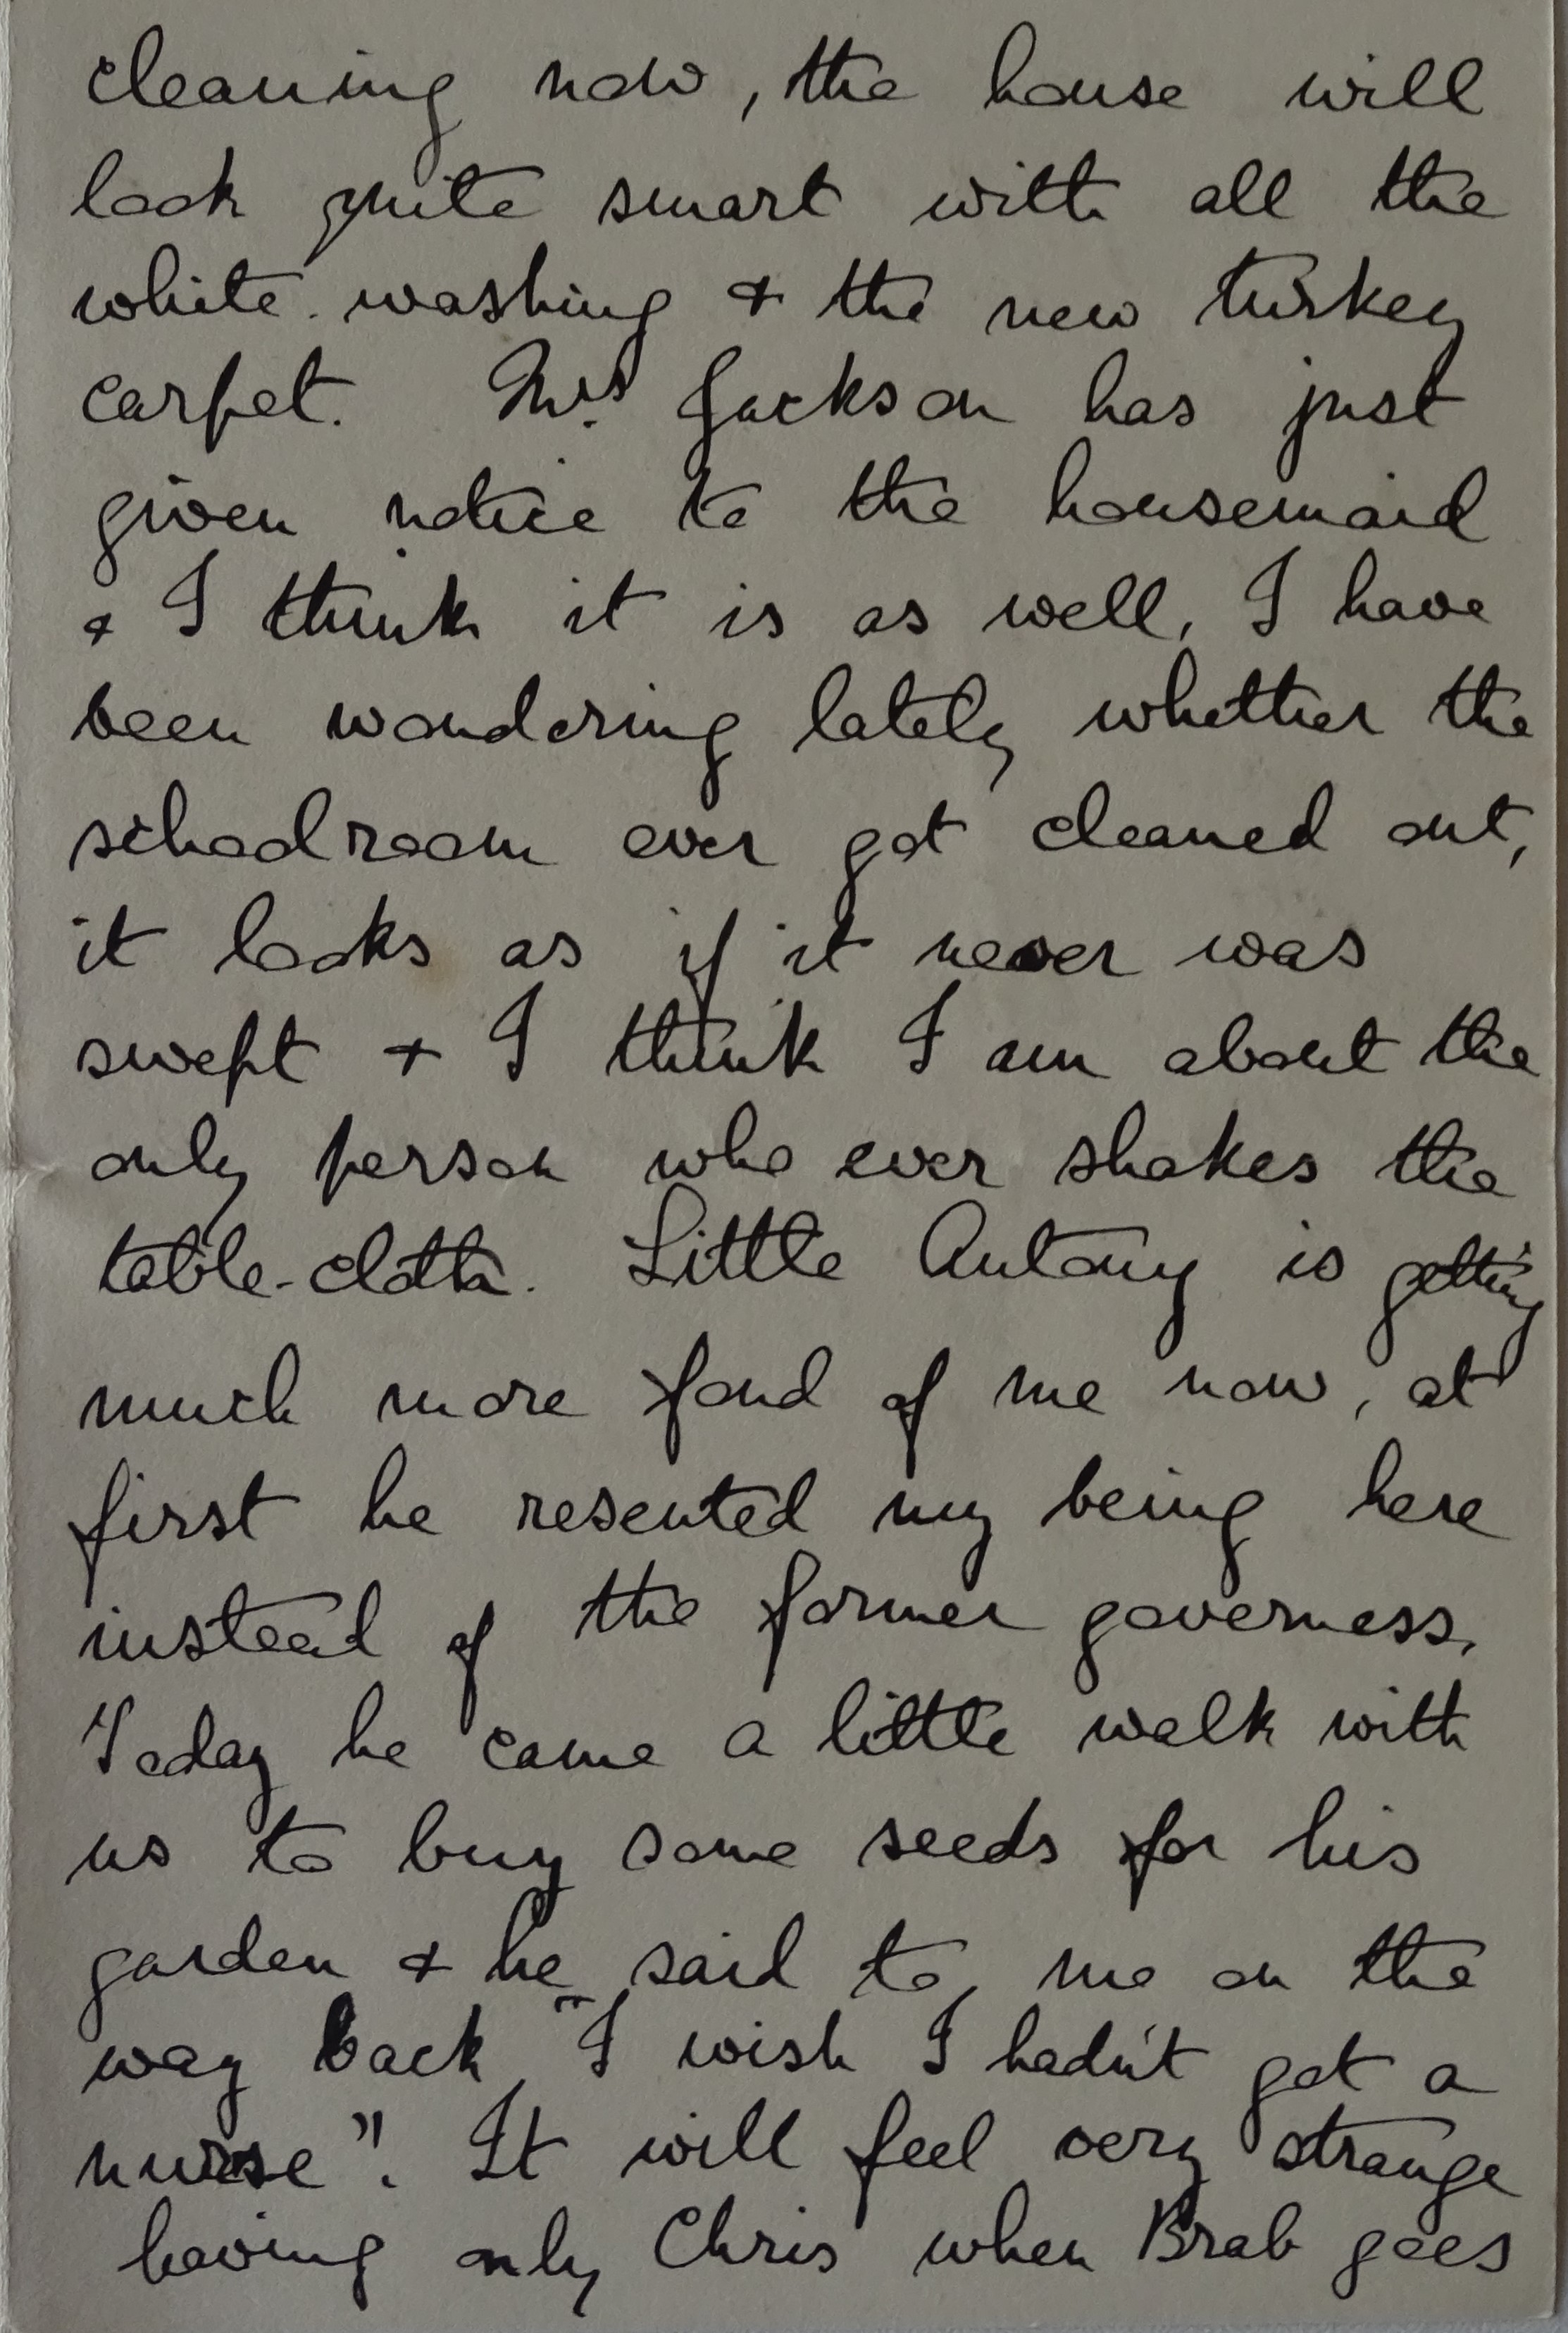 cleaning now, the house will
look quite smart with all the
white-washing & the new turkey
carpet. Mrs. Jackson has just
given notice to the housemaid
& I think it is as well, I have
been wondering lately whether the
schoolroom ever got cleaned out,
it looks as if it never was
swept & I think I am about the
only person who ever shakes the
table-cloth. Little Antony is getting
much more fond of me now, at
first he resented my being here
instead of the former governess.
Today he came a little walk with
us to buy some seeds for his
garden & he said to me on the
way back "I wish I hadn't got a
nurse". It will feel very strange
having only Chris when Brab goes